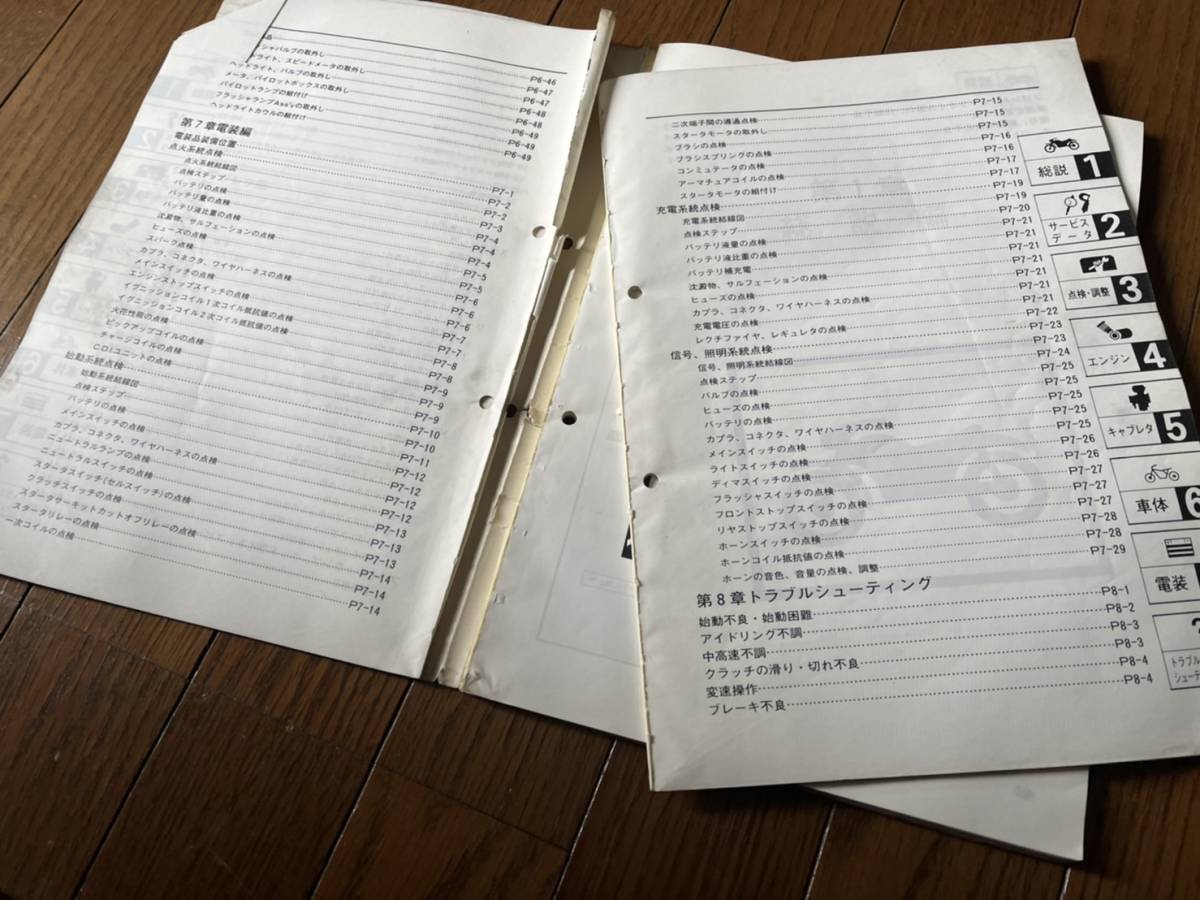 品
シャバルブの取外し
ドライト、スピードメータの取外し P6-46
ヘッドライト、バルブの取外し P6-47
メータ、パイロットボックスの取外し P6-47
パイロットランプの組付け P6-48
フラッシャランプAss'yの取外し P6-48
ヘッドライトカウルの組付け P6-49
P6-49
第7章電装編
電装品装備位置 P7-1
点火系統点検 P7-2
点火系統結線図 P7-2
点検ステップ P7-3
バッテリの点検 P7-4
バッテリ量の点検 P7-4
バッテリ液比重の点検 P7-4
沈澱物、サルフェーションの点検 P7-5
ヒューズの点検 P7-5
スパーク点検 P7-6
カプラ、コネクタ、ワイヤハーネスの点検 P7-6
メインスイッチの点検 P7-6
エンジンストップスイッチの点検 P7-7
イグニッションコイル1次コイル抵抗値の点検 P7-7
イグニッションコイル2次コイル抵抗値の点検 P7-8
火花性能の点検 P7-8
ピックアップコイルの点検 P7-9
チャージコイルの点検 P7-9
CDIユニットの点検 P7-9
始動系統点検 P7-10
始動系統結線図 P7-10
点検ステップ P7-11
バッテリの点検 P7-12
メインスイッチの点検 P7-12
カプラ、コネクタ、ワイヤハーネスの点検 P7-12
ニュートラルランプの点検 P7-12
ニュートラルスイッチの点検 P7-13
スタータスイッチ(セルスイッチ)の点検 P7-13
クラッチスイッチの点検 P7-13
スターターサーキットカットオフリレーの点検 P7-14
スタータリレーの点検 P7-14
一次コイルの点検 P7-14
二次端子間の導通点検 P7-15
スタータモータの取外し P7-15
ブラシの点検 P7-15
ブラシスプリングの点検 P7-16
コンミュテータの点検 P7-16
アーマチュアコイルの点検 P7-17
スタータモータの組付け P7-17
充電系統点検 P7-19
充電系統結線図 P7-19
点検ステップ P7-20
バッテリ液量の点検 P7-21
バッテリ液比重の点検 P7-21
バッテリ補充電 P7-21
沈澱物、サルフェーションの点検 P7-21
ヒューズの点検 P7-21
カプラ、コネクタ、ワイヤハーネスの点検 P7-21
充電電圧の点検 P7-21
レクチファイヤ、レギュレタの点検 P7-22
信号、照明系統点検 P7-23
信号、照明系統結線図 P7-23
点検ステップ P7-24
バルブの点検 P7-25
ヒューズの点検 P7-25
バッテリの点検 P7-25
カプラ、コネクタ、ワイヤハーネスの点検 P7-25
メインスイッチの点検 P7-25
ライトスイッチの点検 P7-26
ディマスイッチの点検 P7-26
フラッシャスイッチの点検 P7-27
フロントストップスイッチの点検 P7-27
リヤストップスイッチの点検 P7-27
ホーンスイッチの点検 P7-28
ホーンコイル抵抗値の点検 P7-28
ホーンの音色、音量の点検、調整 P7-29
第8章トラブルシューティング
始動不良・始動困難 P8-1
アイドリング不調 P8-2
中高速不調 P8-3
クラッチの滑り・切れ不良 P8-3
変速操作 P8-4
ブレーキ不良 P8-4
総説 1
サービスデータ 2
点検・調整 3
エンジン 4
キャブレタ 5
車体 6
電装
トラブル
シューテ